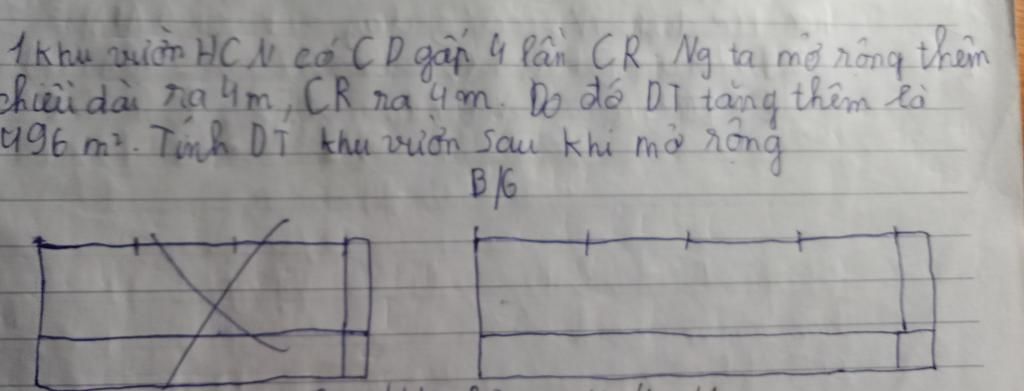 1. Khu vườn HCN có CD gấp 4 lần CR. Ng ta mở rộng thêm
chiều dài ra 4m, CR ra 4m. Do đó DT tăng thêm là
496 m². Tính DT khu vườn sau khi mở rộng
B/G